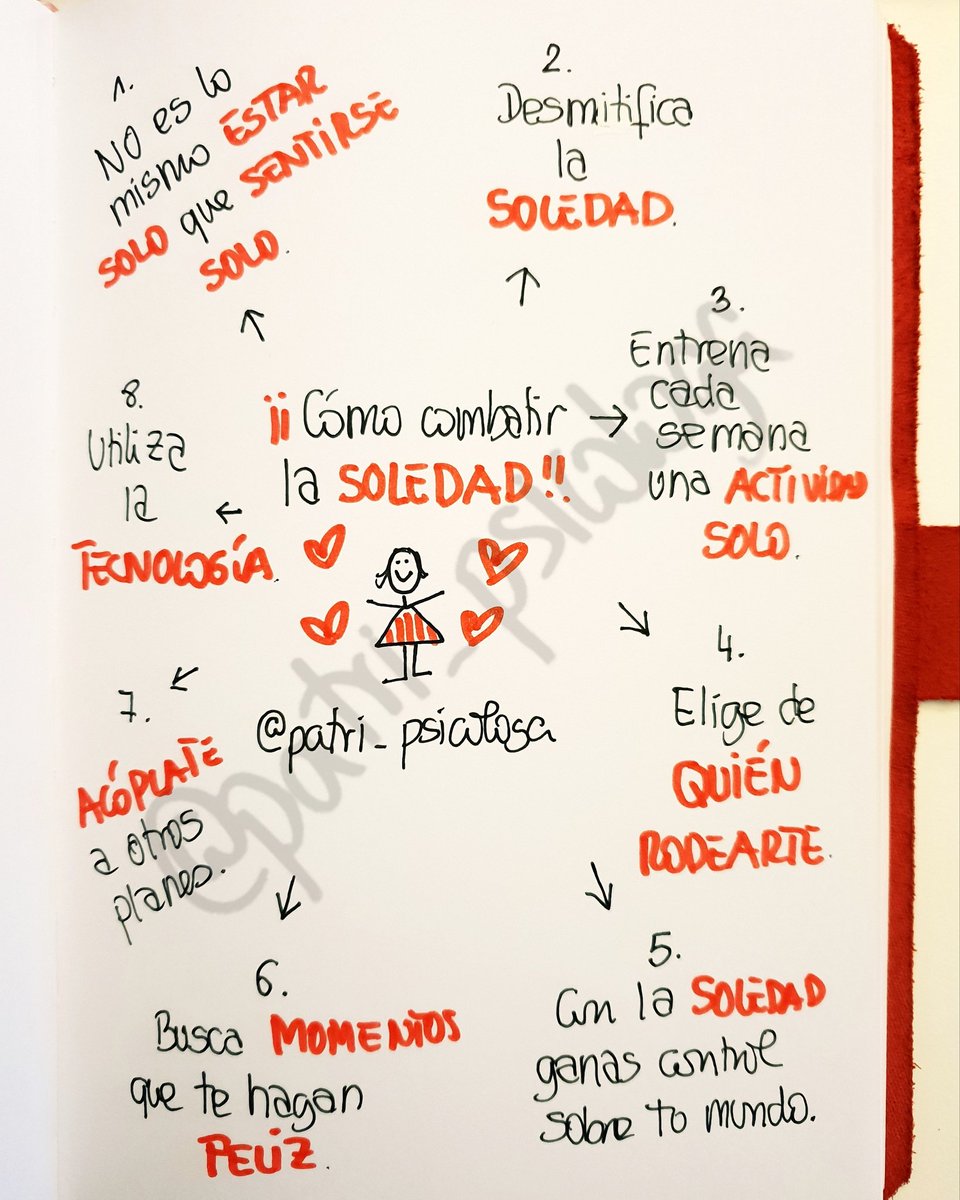 ¡¡ Cómo combatir
la SOLEDAD!!
@patri_psicologa
1.
NO es lo
mismo ESTAR
SOLO que SENTIRSE
SOLO.
2.
Desmitifica
la
SOLEDAD.
3.
Entrena
cada
semana
una ACTIVIDAD
SOLO.
4.
Elige de
QUIÉN
RODEARTE.
5.
Con la SOLEDAD
ganas control
sobre tu mundo.
6.
Busca MOMENTOS
que te hagan
FELIZ.
7.
ACÓPLATE
a otros
planes.
8.
Utiliza
la
TECNOLOGÍA.
@patri_psicologa